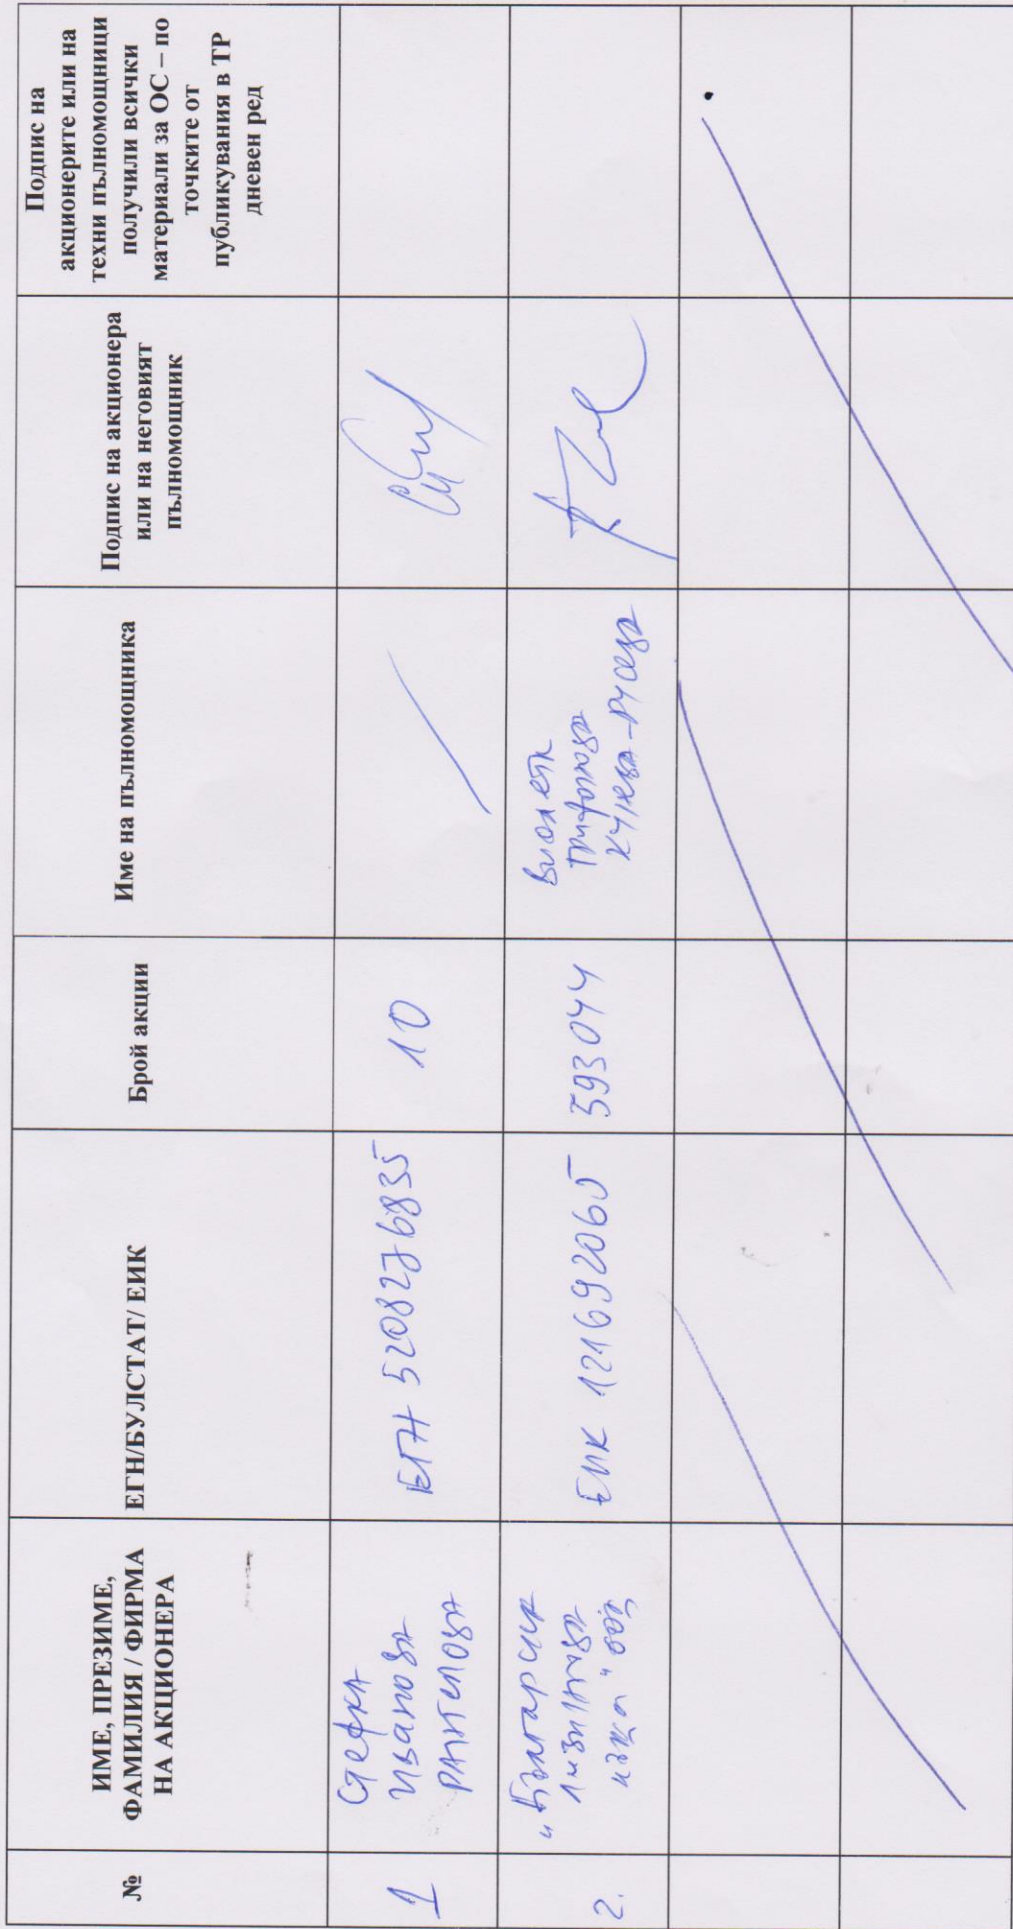 №
ИМЕ, ПРЕЗИМЕ,
ФАМИЛИЯ / ФИРМА
НА АКЦИОНЕРА
ЕГН/БУЛСТАТ/ ЕИК
Брой акции
Име на пълномощника
Подпис на акционера
или на неговият
пълномощник
Подпис на
акционерите или на
техни пълномощници
получили всички
материали за ОС – по
точките от
публикувания в ТР
дневен ред
1
Стефка
Иванова
ЕГН 5208276835
10
2.
"Българска
лизингова
къща" ООД
ЕИК 121692065
593044
Виолета
Трифонова